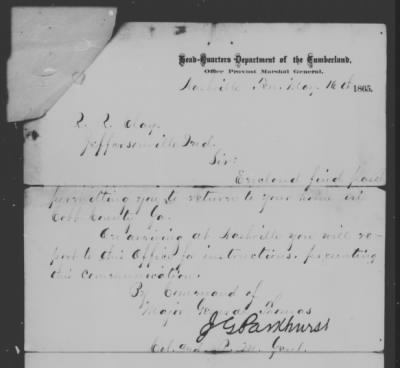 Head-Quarters Department of the Cumberland,
Office Provost Marshal General,
Nashville Ten. May 16th 1865.
R. R. Clay.
Jeffersonville Ind.
Sir:
Enclosed find pass
permitting you to return to your home in
Cobb County Ga.
On arriving at Nashville you will re-
port to this Office for instructions, presenting
this communication.
By Command of
Major General Thomas
J G Parkhurst
Col. and P. M. Genl.